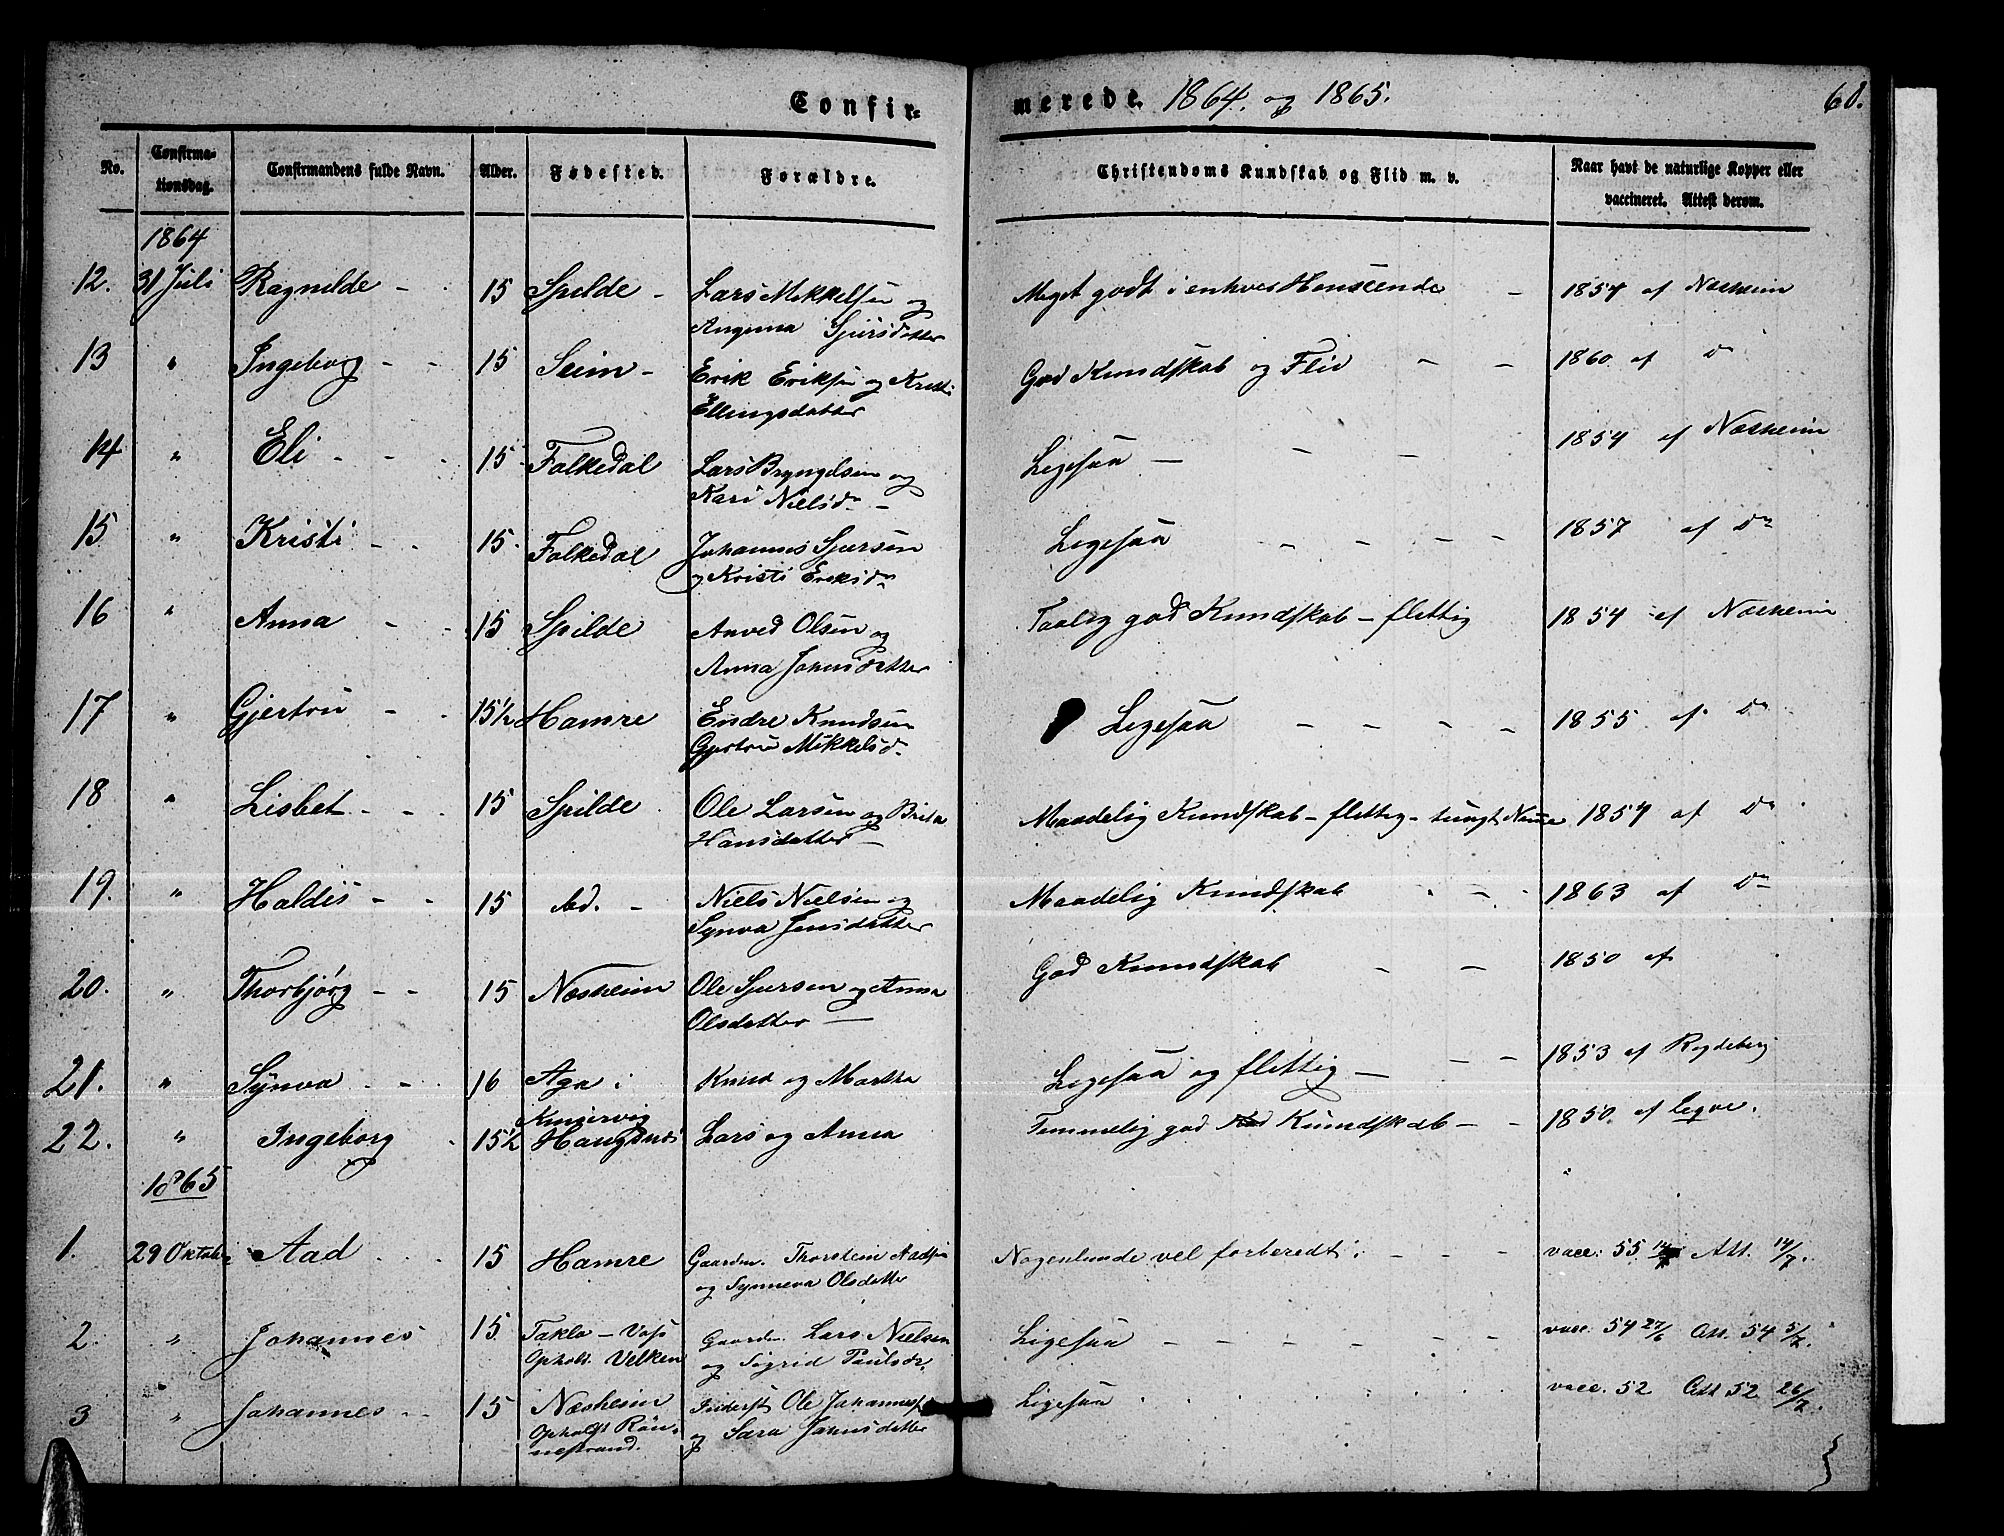 Confir-
merede. 1864. og 1865.
68.
No.
Confirma-
tionsdag.
Confirmandens fulde Navn.
Alder.
Fødested.
Forældre.
Christendoms Kundskab og Flid m. v.
Naar havt de naturlige Kopper eller
vaccineret. Attest derom.
1864
12. 31 Juli Ragnilde - 15 Spilde - Lars Mikkelsen og
Sjursdatter
Meget godt i enhver Henseende - 1854 af Næsheim
13 " Ingeborg - - 15 Seim - Erik Eriksen og Kristi
Ellingsdatter
God Kundskab og Flid - - 1860 af Do
14 " Eli - - - 15 Folkedal Lars Bryngelsen og
Kari Nielsdr -
Ligesaa - - - 1854 af Næsheim
15 " Kristi - - 15 Folkedal Johannes Sjursen
og Kristi Eriksdr
Ligesaa - - - - 1857 af Do
16 " Anna - - 15 Spilde Anved Olsen og
Anna Johnsdatter
Taalig god Kundskab - flittig 1854 af Næsheim
17 " Gjertru - - 15½ Hamre Endre Knudsen
Gjertru Mikkelsd.
Ligesaa - - - - 1855 af Do
18 " Lisbet - - - 15 Spilde Ole Larsen og Brita
Hansdatter -
Maadelig Kundskab - flittig - tungt Nemme 1854 af Do
19. " Haldis - - 15 Niels Nielsen og
Synva Jensdatter
Maadelig Kundskab - - - 1863 af Do
20. " Thorbjørg - - 15 Næsheim Ole Sjursen og Anna
Olsdatter -
God Kundskab - - 1850 af
21. " Synva - - - 16 Aga i
Kinservig
Knud og Martha
Ligesaa og flittig - - - 1853 af Rygdeberg
22. " Ingeborg - 15½ Lars og Anna
Temmelig god Kundskab - - 1850. af
1865
1. 29 Oktob Aad - - - 15 Hamre Gaardm. Thorstein Aadsen
og Synneva Olsdatter
Nogenlunde vel forberedt. - - - vacc. 55 Att. 14/7.
2. " Johannes 15 Takla - Voss
Opholdt. Velken
Gaardm. Lars Nielsen
og Sigrid Paulsdr.
Ligesaa - - - - - vacc. 54 27/6 Att. 54 5/7.
3 " Johannes - - 15 Næsheim
Opholdt Røn-
nestrand.
Inderst Ole Johanness.
og Sara Johnsdatter
Ligesaa . . . . vacc. 52 Att 52 26/7.